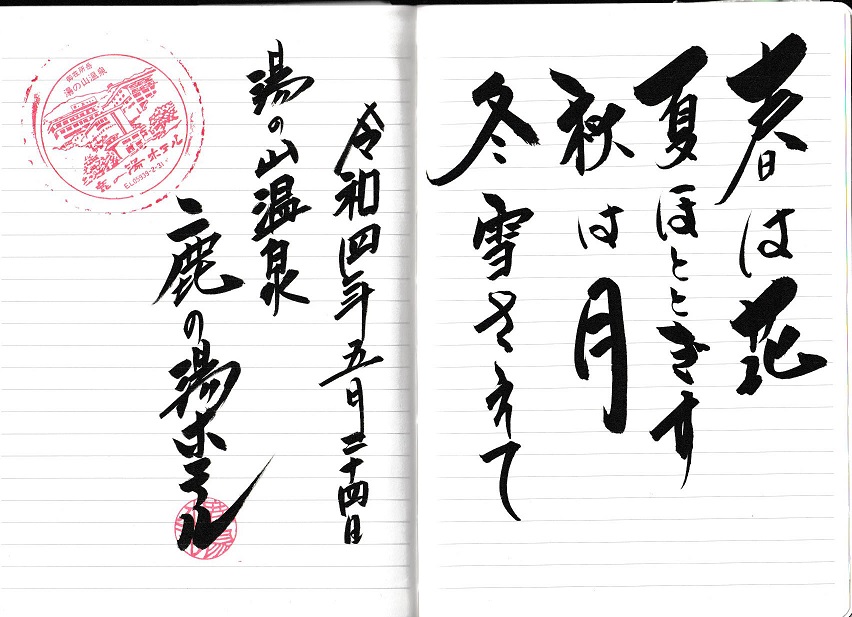 春は花
夏ほととぎす
秋は月
冬雪さえて
令和四年五月二十四日
湯の山温泉
鹿の湯ホテル
湯の山温泉
鹿の湯ホテル